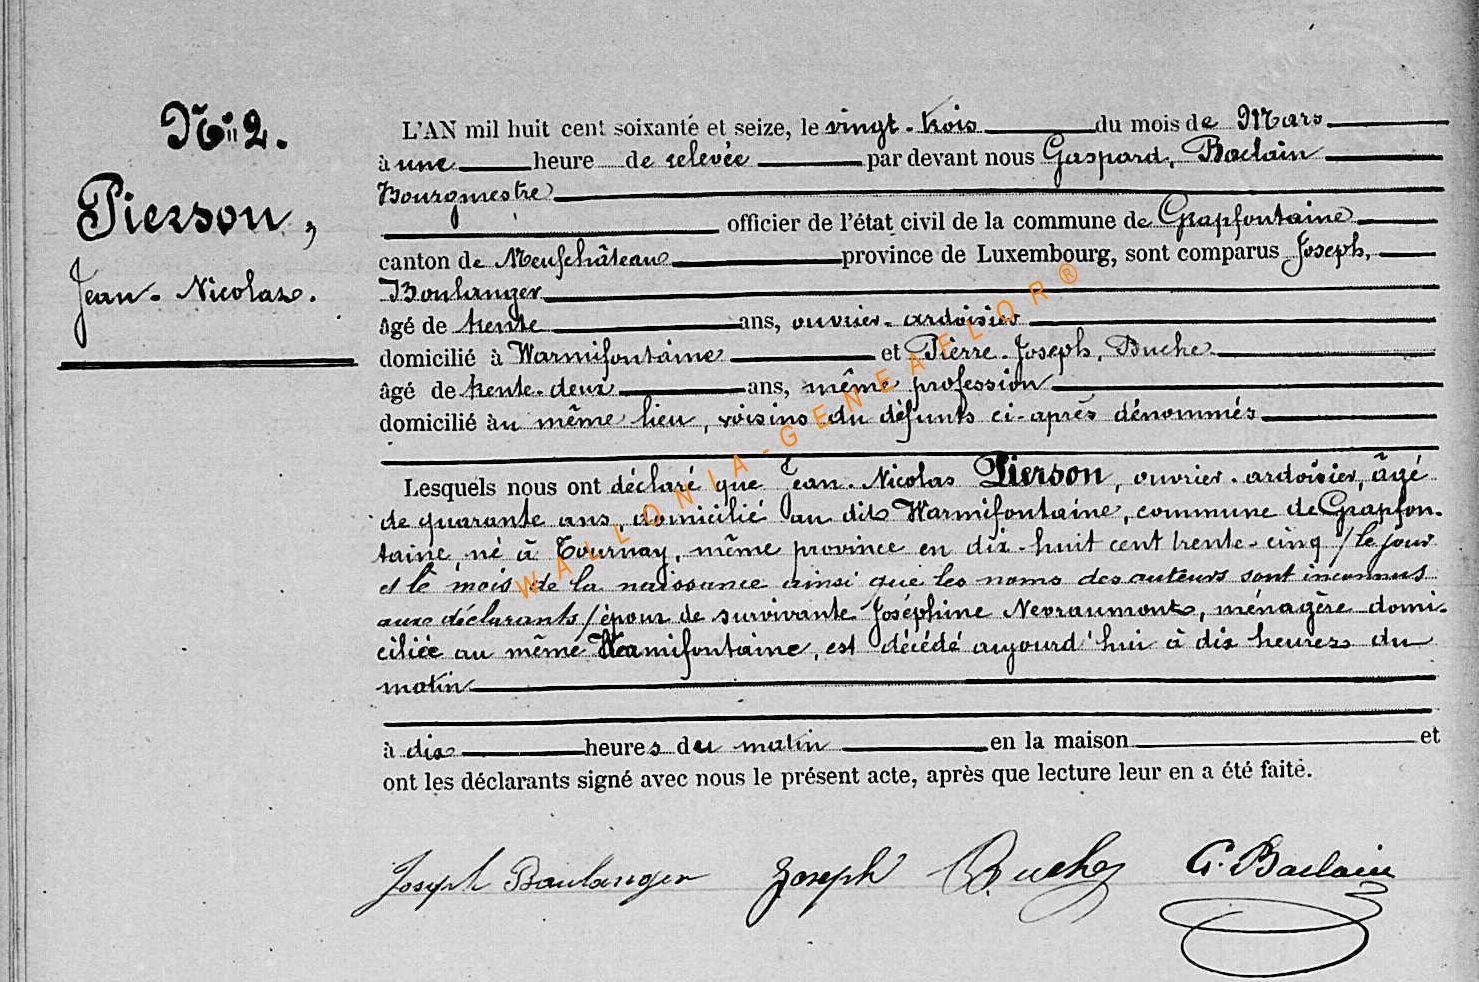 N° 2.
Pierson,
Jean-Nicolas.
L'AN mil huit cent soixante et seize, le vingt-trois du mois de Mars
à une heure de relevée par devant nous Gaspard, Baclain
Bourgmestre
officier de l'état civil de la commune de Grapfontaine
canton de Neufchâteau province de Luxembourg, sont comparus Joseph,
Boulanger
âgé de trente ans, ouvrier-ardoisier
domicilié à Warmifontaine et Pierre-Joseph, Buche
âgé de trente-deux ans, même profession
domicilié au même lieu, voisins du défunts ci-après dénommés
Lesquels nous ont déclaré que Jean-Nicolas Pierson, ouvrier-ardoisier, âgé
de quarante ans, domicilié au dit Warmifontaine, commune de Grapfon-
taine, né à Tournay, même province en dix-huit cent trente-cinq /le jour
et le mois de la naissance ainsi que les noms des auteurs sont inconnus
aux déclarants/ époux de survivante Joséphine Nevraumont, ménagère domi-
ciliée au même Warmifontaine, est décédé aujourd'hui à dix heures du
matin
à dix heures du matin en la maison et
ont les déclarants signé avec nous le présent acte, après que lecture leur en a été faite.
Joseph Boulanger Joseph Buche G. Baclain
WALLONIA-GENEAFLOR®